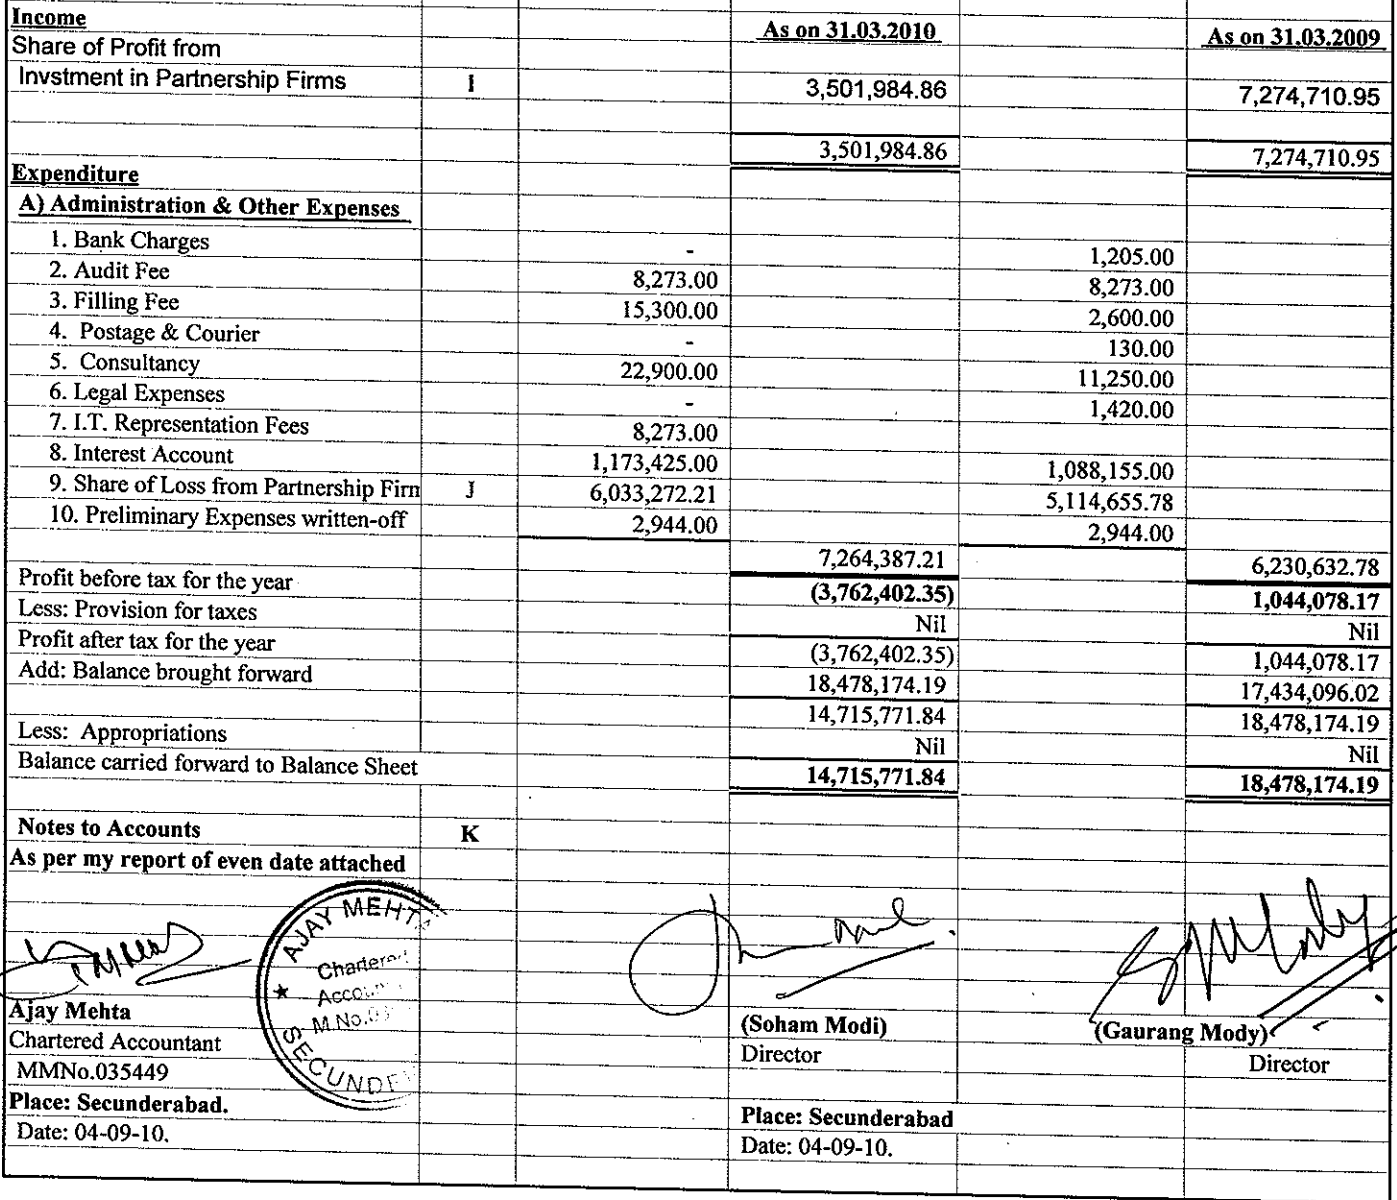 Income As on 31.03.2010 As on 31.03.2009
Share of Profit from
Invstment in Partnership Firms I 3,501,984.86 7,274,710.95
3,501,984.86 7,274,710.95
Expenditure
A) Administration & Other Expenses
1. Bank Charges - 1,205.00
2. Audit Fee 8,273.00 8,273.00
3. Filling Fee 15,300.00 2,600.00
4. Postage & Courier - 130.00
5. Consultancy 22,900.00 11,250.00
6. Legal Expenses - 1,420.00
7. I.T. Representation Fees 8,273.00
8. Interest Account 1,173,425.00 1,088,155.00
9. Share of Loss from Partnership Firn J 6,033,272.21 5,114,655.78
10. Preliminary Expenses written-off 2,944.00 2,944.00
7,264,387.21 6,230,632.78
Profit before tax for the year (3,762,402.35) 1,044,078.17
Less: Provision for taxes Nil Nil
Profit after tax for the year (3,762,402.35) 1,044,078.17
Add: Balance brought forward 18,478,174.19 17,434,096.02
14,715,771.84 18,478,174.19
Less: Appropriations Nil Nil
Balance carried forward to Balance Sheet 14,715,771.84 18,478,174.19
Notes to Accounts K
As per my report of even date attached
AJAY MEHTA
Chartered
M.No.03
SECUNDE
Ajay Mehta (Soham Modi) (Gaurang Mody)
Chartered Accountant Director Director
MMNo.035449
Place: Secunderabad. Place: Secunderabad
Date: 04-09-10. Date: 04-09-10.